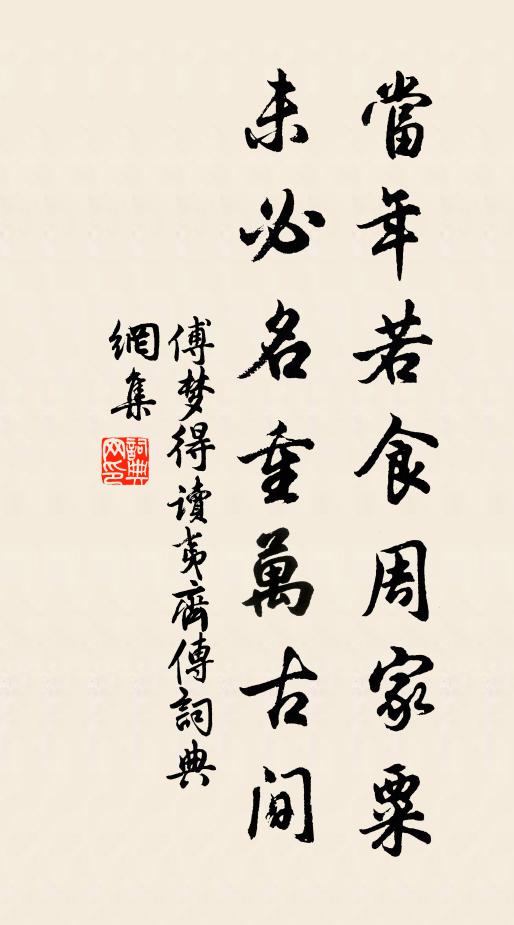 當年若食周家粟
未必名重萬古間
傅梦得讀夷齊傳詞典
網集
詞典
网印